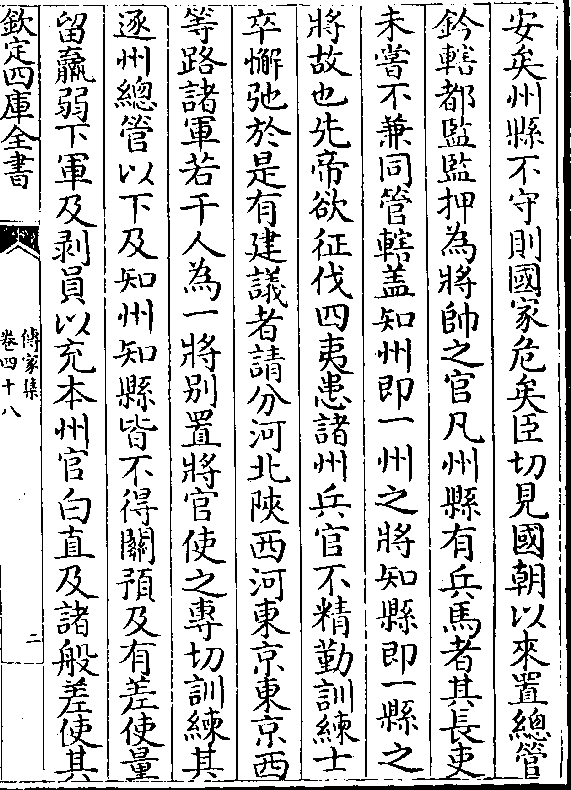 安矣州縣不守則國家危矣臣切見國朝以來置總管
鈐轄都監監押為將帥之官凡州縣有兵馬者其長吏
未嘗不兼同管轄盖知州即一州之將知縣即一縣之
將故也先帝欲征伐四夷患諸州兵官不精勤訓練士
卒懈弛於是有建議者請分河北陜西河東京東京西
等路諸軍若干人為一將别置將官使之專切訓練其
逐州總管以下及知州知縣皆不得關預及有差使量
留羸弱下軍及剥員以充本州官白直及諸般差使其
欽定四庫全書
傳家集
卷四十八
二